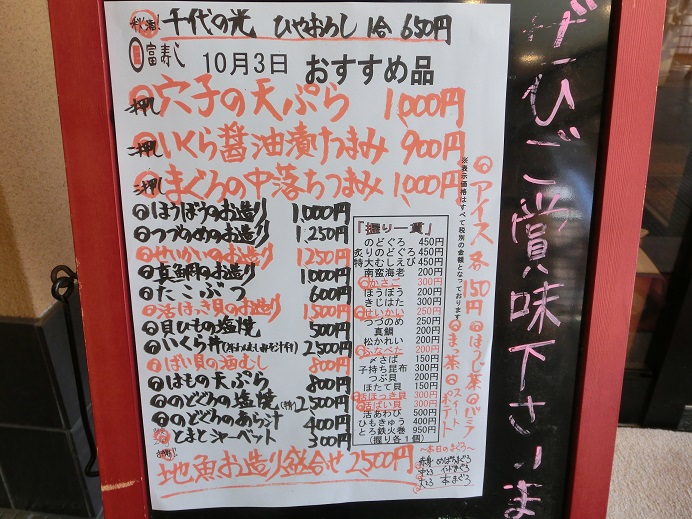 千代の光 ひやおろし 1合 650円
富寿し
10月3日 おすすめ品
一押 穴子の天ぷら 1,000円
二押 いくら醤油漬けつまみ 900円
三押 まぐろの中落ちつまみ 1,000円
ほうぼうのお造り 1,000円
つづのめのお造り 1,250円
せいかいのお造り 1,250円
真鯛のお造り 1,000円
たこぶつ 600円
活ほっき貝のお造り 1,500円
貝ひもの塩焼 500円
いくら丼 2,500円
ばい貝の酒むし 800円
はもの天ぷら 800円
のどぐろの塩焼 2,500円
のどぐろのあら汁 400円
とまとシャーベット 300円
地魚お造り盛合せ 2,500円
「握り一貫」
のどぐろ 450円
炙りのどぐろ 450円
特大むしえび 450円
南蛮海老 200円
かさご 300円
ほうぼう 200円
きじはた 300円
せいかい 250円
つづのめ 250円
真鯛 200円
松かれい 200円
ふなべた 200円
〆さば 150円
子持ち昆布 300円
つぶ貝 200円
ほたて貝 150円
活ほっき貝 300円
活ばい貝 300円
活あわび 500円
ひもきゅう 400円
とろ鉄火巻 950円
(握り各1個)
※表示価格はすべて税別の金額となっております
アイス各150円
ほうじ茶 バニラ
まっ茶 スイートポテト
~本日のまぐろ~
赤身 めばちまぐろ
中とろ インドまぐろ
大とろ 本まぐろ
ぜひご賞味下さいま